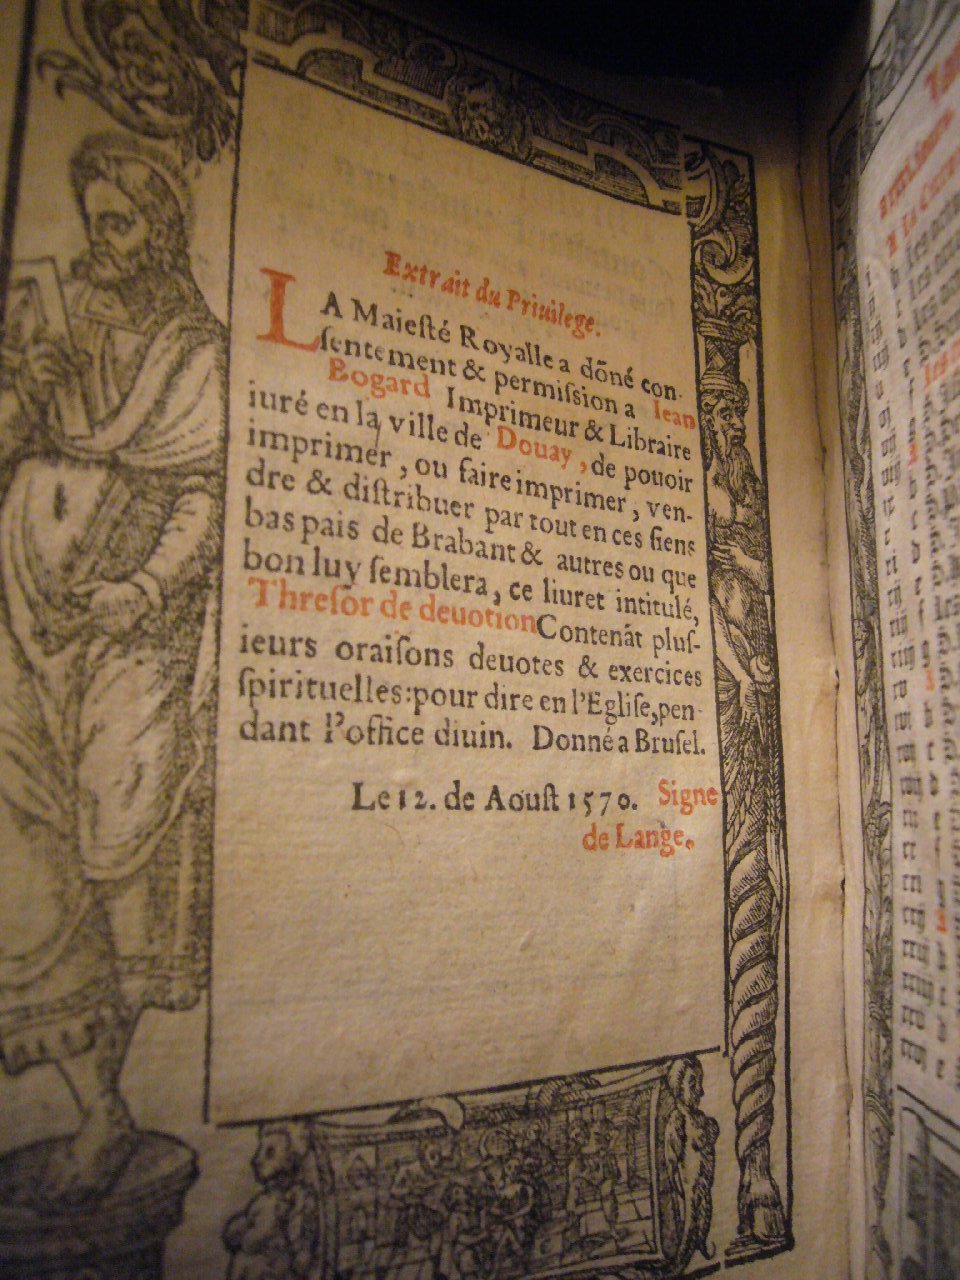 Extrait du Priuilege.
LA Maiesté Royalle a dōné con-
sentement & permission a Iean
Bogard Imprimeur & Libraire
iuré en la ville de Douay, de pouoir
imprimer, ou faire imprimer, ven-
dre & distribuer par tout en ces siens
bas pais de Brabant & autres ou que
bon luy semblera, ce liuret intitulé,
Thresor de deuotion Contenāt plus-
ieurs oraisons deuotes & exercices
spirituelles: pour dire en l'Eglise, pen-
dant l'office diuin. Donné a Brusel.
Le 12. de Aoust 1570. Signe
de Lange.